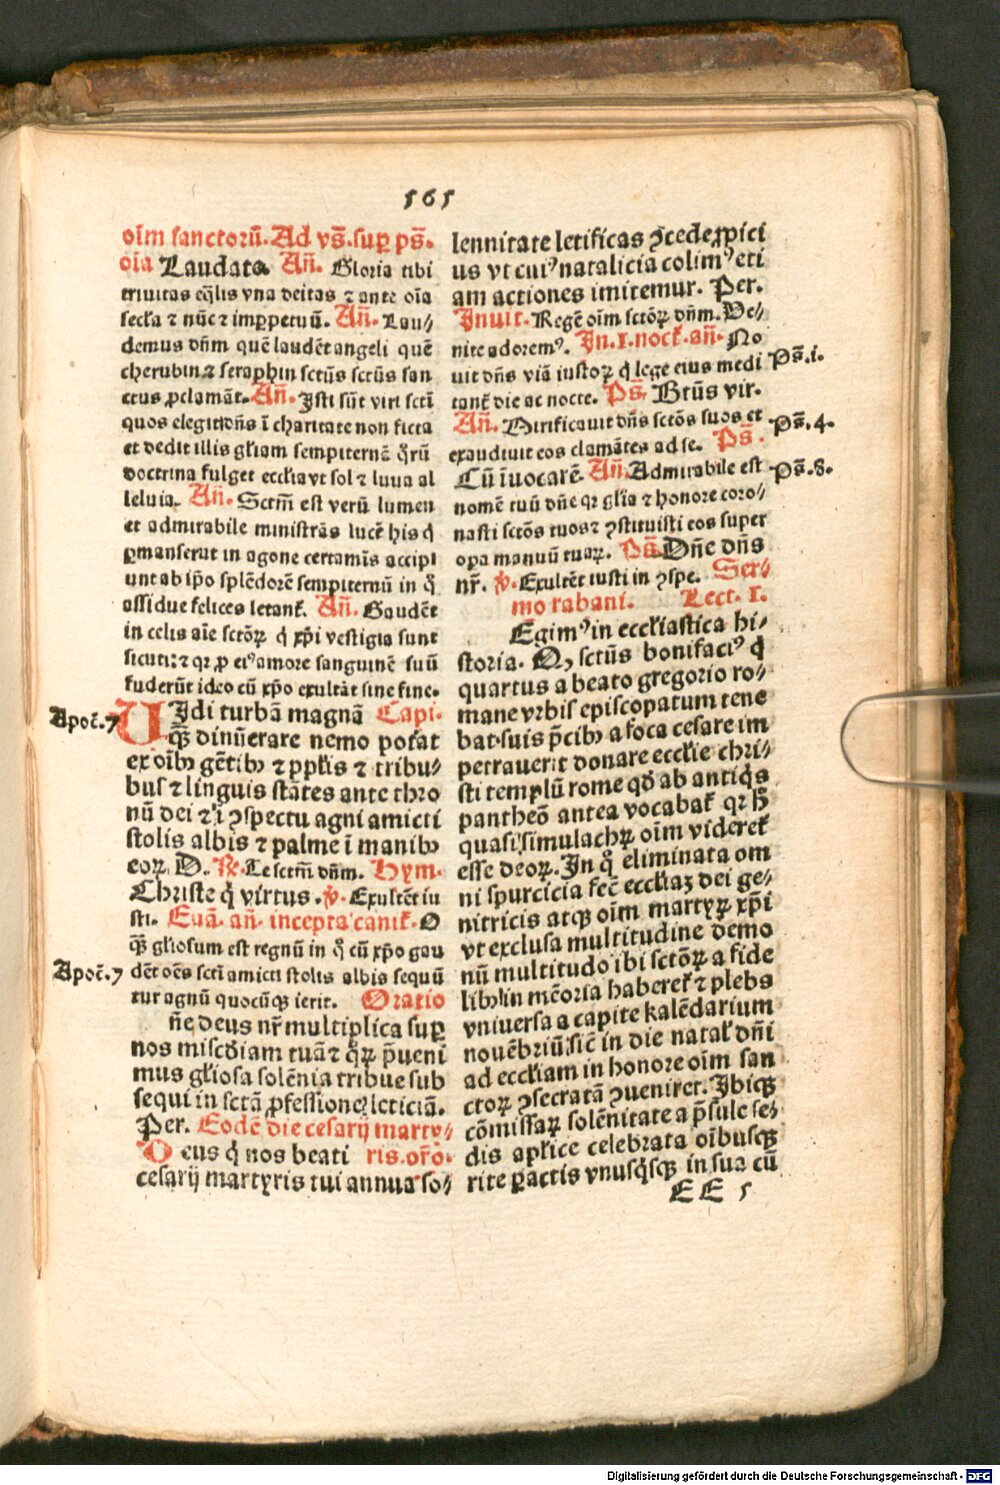 565
oīm sanctorū. Ad vs̄. sup ps̄.
oīa Laudata. Añ. Gloria tibi
trinitas eq̄lis vna deitas ⁊ ante oīa
secĺa ⁊ nūc ⁊ imppetuū. Añ. Lau⸗
demus dñm quē laudēt angeli quē
cherubin ⁊ seraphin sctūs sctūs san
ctus ꝓclamāt. Añ. Isti sūt viri scti
quos elegit dñs ī charitate non ficta
et dedit illis gĺiam sempiternā q̄rū
doctrina fulget eccĺia vt sol ⁊ luna al
leluia. Añ. Sctm̄ est verū lumen
et admirabile ministrās lucē his q̄
ꝑmanserūt in agone certamīs accipi
unt ab ip̄o splēdorē sempiternū in q̄
assidue felices letant̄. Añ. Gaudēt
in celis aīe sctōꝝ q̄ xp̄i vestigia sunt
sicuti: ⁊ qꝛ ꝓ eiꝰ amore sanguinē suū
fuderūt ideo cū xp̄o exultāt sine fine.
Apoc̄. 7 UIdi turbā magnā Capi.
qꝫ dinūerare nemo potat
ex oīb⁹ gētib⁹ ⁊ ppĺis ⁊ tribu⸗
bus ⁊ linguis stātes ante thro
nū dei ⁊ ī ꝯspectu agni amicti
stolis albis ⁊ palme ī manib⁹
eoꝝ. D. ℟. Te sctm̄ dñm. Hym.
Christe q̄ virtus. ℣. Exultēt iu
sti. Euā. añ. incepta canit̄. O
qꝫ gĺiosum est regnū in q̄ cū xp̄o gau
Apoc̄. 7 dēt oēs scti amicti stolis albis sequū
tur agnū quocūqꝫ ierit. Oratio
ñe deus nr̄ multiplica suꝑ
nos mīscḋiam tuā ⁊ q̄ꝝ p̄ueni
mus gĺiosa solēnia tribue sub
sequi in sctā ꝓfessione leticiā.
Per. Eodē die cesarij marty⸗
Deus q̄ nos beati ris. oro.
cesarij martyris tui annua so⸗
lennitate letificas ꝯcede ꝓpici
us vt cuiꝰ natalicia colimꝰ eti
am actiones imitemur. Per.
Inuit. Regē oīm sctōꝝ dñm. Ve⸗
nite adoremꝰ. In. 1. noct̄. añ. No
uit dñs viā iustoꝝ q̄ lege eius medi Ps̄. i.
tant̄ die ac nocte. Ps̄. Btūs vir.
Añ. Mirificauit dñs sctōs suos et Ps̄. 4.
exaudiuit eos clamātes ad se. Ps̄.
Cū īuocarē. Añ. Admirabile est Ps̄. 8.
nomē tuū dñe qꝛ gĺia ⁊ honore coro⸗
nasti sctōs tuos ⁊ ꝯstituisti eos super
opa manuū tuaꝝ. Ps̄. Dñe dñs
nr̄. ℣. Exultēt iusti in ꝯspe. Ser⸗
mo rabani. Lect. 1.
Egimꝰ in eccĺiastica hi⸗
storia. Qꝫ sctūs bonifaciꝰ q̄
quartus a beato gregorio ro⸗
mane vrbis episcopatum tene
bat. suis p̄cib⁹ a foca cesare im
petrauerit donare eccĺie chri⸗
sti templū rome qd̄ ab antiq̄s
pantheō antea vocabat̄ qꝛ h̄
quasi simulachꝝ oīm videret̄
esse deoꝝ. In q̄ eliminata om
ni spurcicia fec̄ eccĺiaꝫ dei ge⸗
nitricis atqꝫ oīm martyꝝ xp̄i
vt exclusa multitudine demo
nū multitudo ibi sctōꝝ a fide
lib⁹ in mēoria haberet̄ ⁊ plebs
vniuersa a capite kalēdarium
nouēbriū sic̄ in die nataĺ dñi
ad eccĺiam in honore oīm san
ctoꝝ ꝯsecratā ꝯueniret. Ibiqꝫ
cōmissaꝝ solēnitate a p̄sule se⸗
dis apĺice celebrata oībusqꝫ
rite ꝑactis vnusq̄sqꝫ in sua cū
EE 5
Digitalisierung gefördert durch die Deutsche Forschungsgemeinschaft - DFG